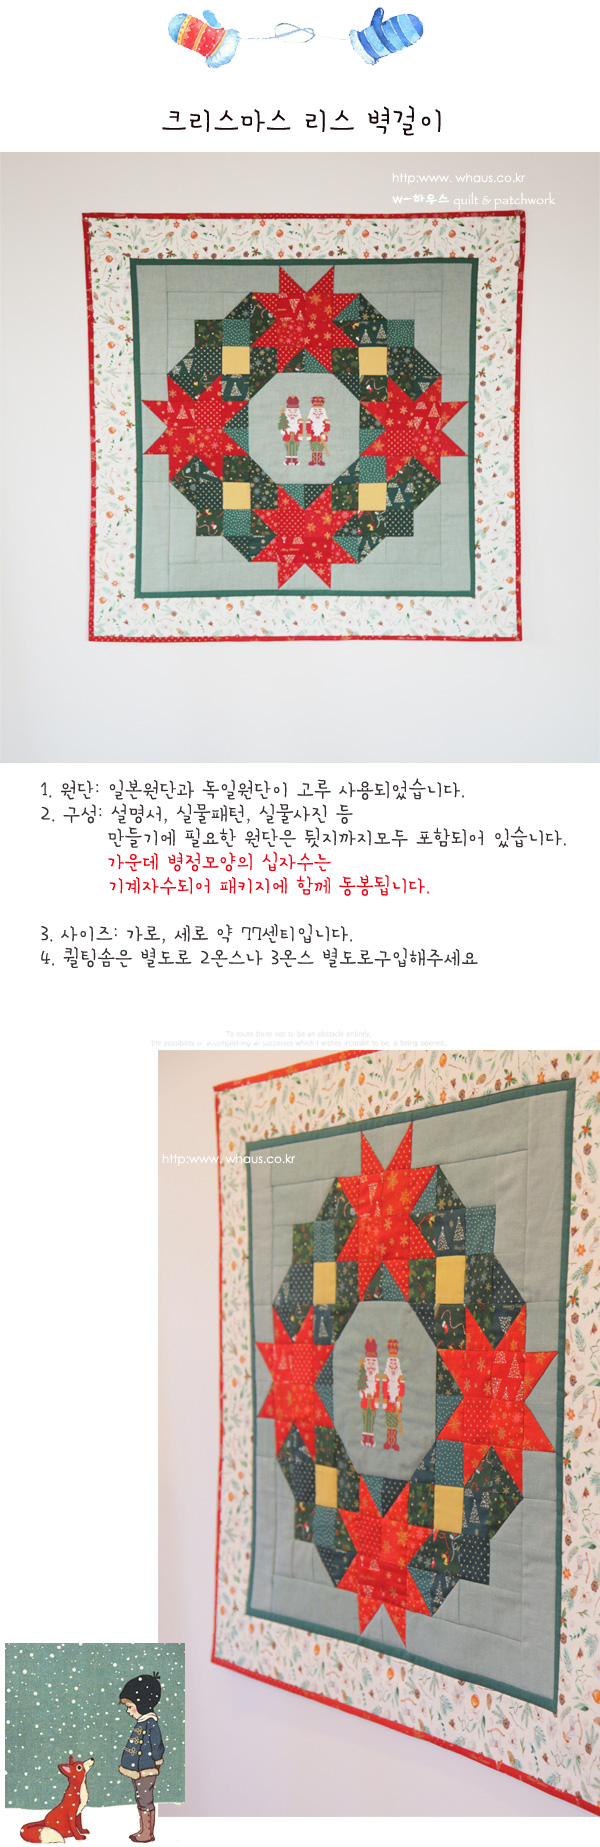 크리스마스 리스 벽걸이
http:www. whaus.co.kr
w-하우스 quilt & patchwork
1. 원단: 일본원단과 독일원단이 고루 사용되었습니다.
2. 구성: 설명서, 실물패턴, 실물사진 등
만들기에 필요한 원단은 뒷지까지모두 포함되어 있습니다.
가운데 병정모양의 십자수는
기계자수되어 패키지에 함께 동봉됩니다.
3. 사이즈: 가로, 세로 약 77센티입니다.
4. 퀼팅솜은 별도로 2온스나 3온스 별도로구입해주세요
To route there not to be an obstacle entirely,
the possibility of accomplishing all successes which I wishes in order to be, is being opened.
http:www. whaus.co.kr